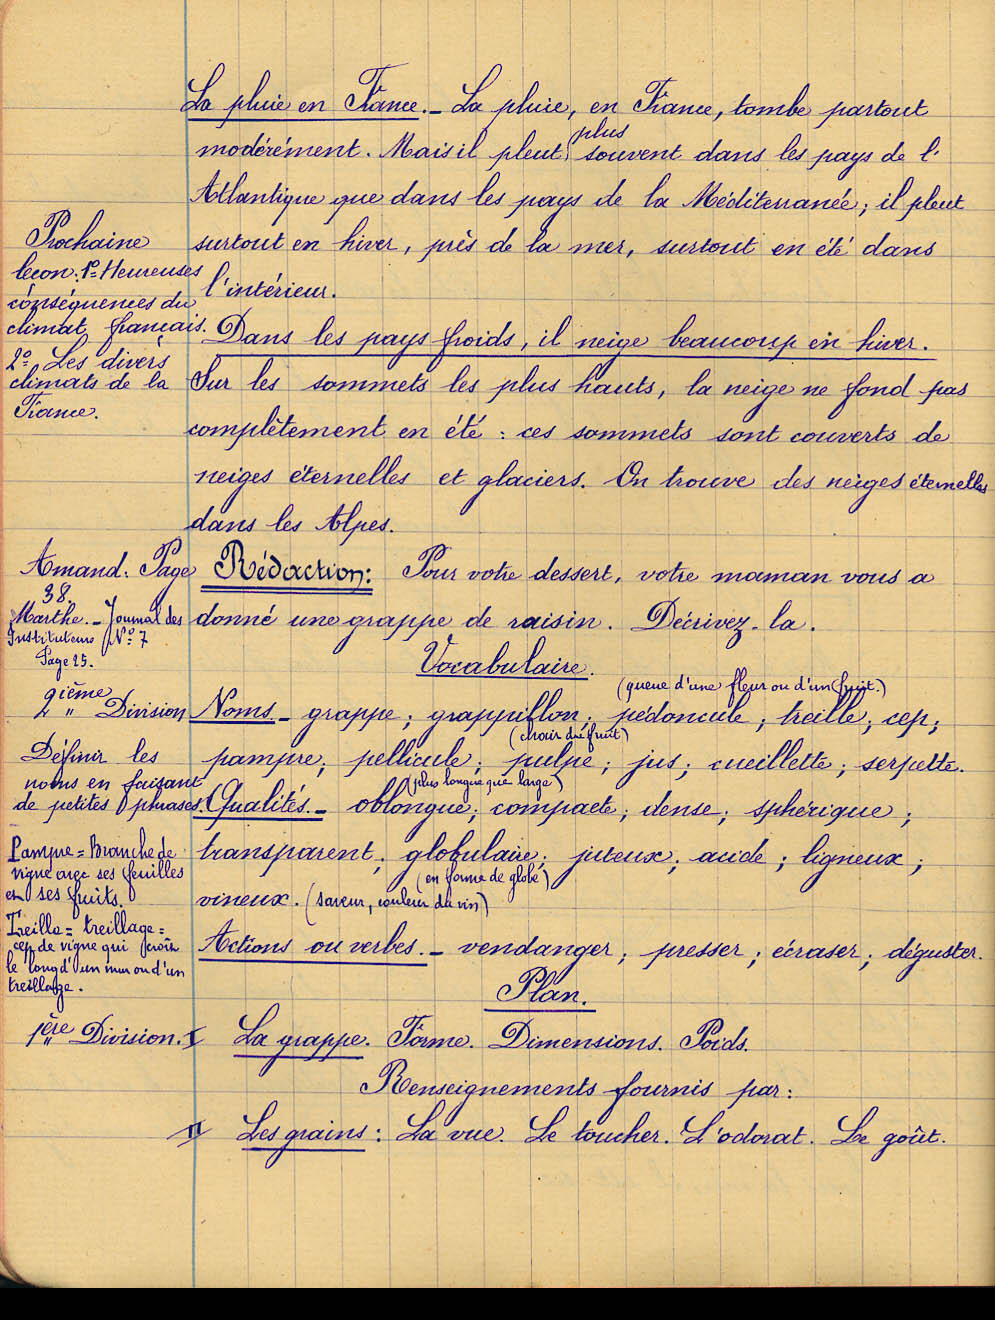 La pluie en France. _ La pluie, en France, tombe partout
plus
modérément. Mais il pleut souvent dans les pays de l'
Atlantique que dans les pays de la Méditerranée ; il pleut
surtout en hiver, près de la mer, surtout en été dans
l'intérieur.
Prochaine
leçon : 1º Heureuses
conséquences du
climat français.
2º Les divers
climats de la
France.
Dans les pays froids, il neige beaucoup en hiver.
Sur les sommets les plus hauts, la neige ne fond pas
complètement en été : ces sommets sont couverts de
neiges éternelles et glaciers. On trouve des neiges éternelles
dans les Alpes.
Amand. Page
38.
Marthe. _ Journal des
Instituteurs Nº 7
Page 25.
Rédaction : Pour votre dessert, votre maman vous a
donné une grappe de raisin. Décrivez-la.
Vocabulaire.
(queue d'une fleur ou d'un fruit.)
2ième Division
Noms _ grappe ; grappillon ; pédoncule ; treille ; cep ;
(chair du fruit)
Définir les
noms en faisant
de petites phrases.
pampre ; pellicule ; pulpe ; jus ; cueillette ; serpette.
(plus longue que large)
Qualités. _ oblongue ; compacte ; dense ; sphérique ;
transparent ; globulaire ; juteux ; acide ; ligneux ;
(en forme de globe)
vineux. (saveur, couleur du vin)
Pampre = Branche de
vigne avec ses feuilles
et ses fruits.
Treille = treillage =
cep de vigne qui croît
le long d'un mur ou d'un
treillage.
Actions ou verbes. _ vendanger ; presser ; écraser ; déguster.
Plan.
1ère Division.
I La grappe. Forme. Dimensions. Poids.
Renseignements fournis par :
II Les grains : La vue. Le toucher. L'odorat. Le goût.